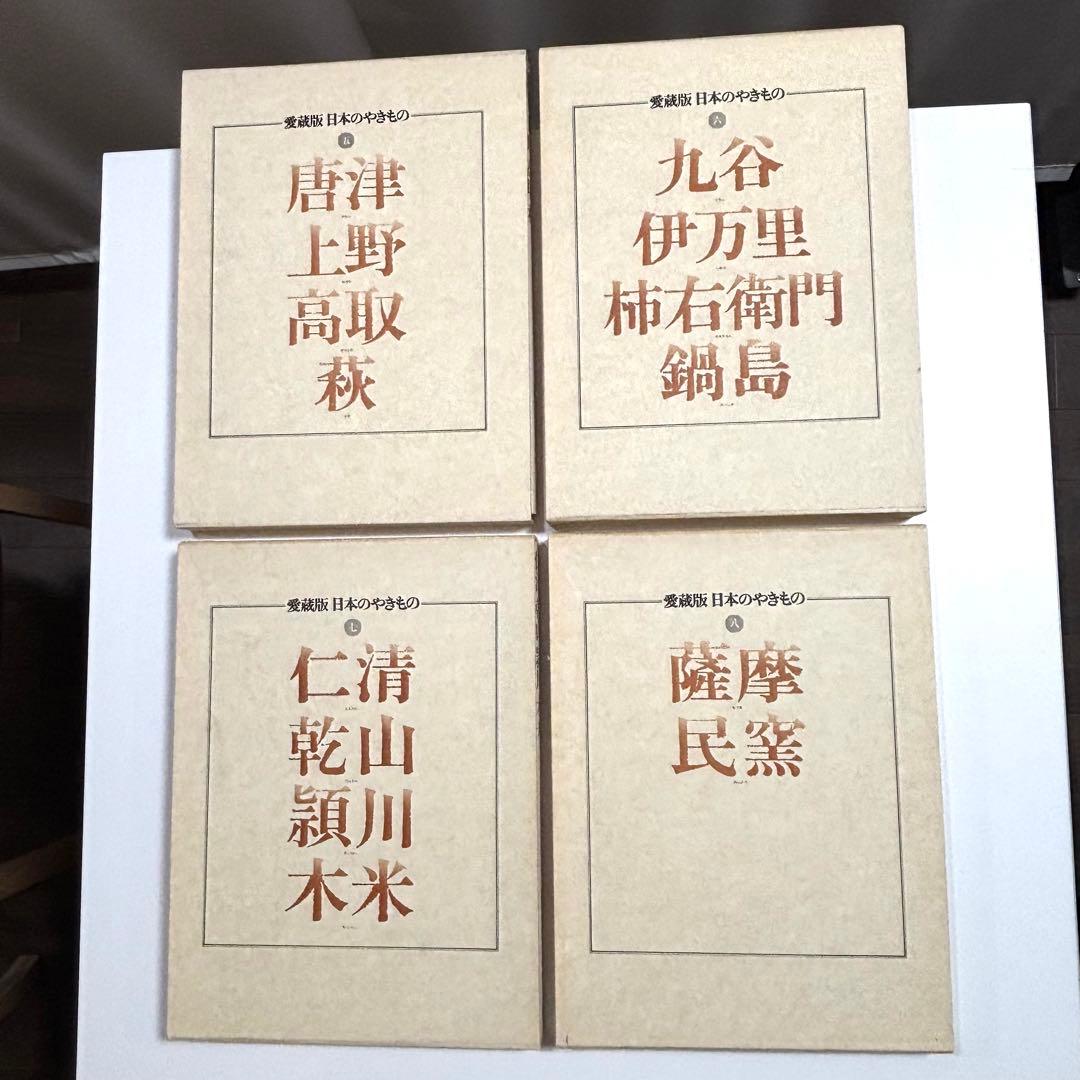 愛蔵版 日本のやきもの
五
唐津
上野
高取
萩
愛蔵版 日本のやきもの
六
九谷
伊万里
柿右衛門
鍋島
愛蔵版 日本のやきもの
七
仁清
乾山
頴川
木米
愛蔵版 日本のやきもの
八
薩摩
民窯